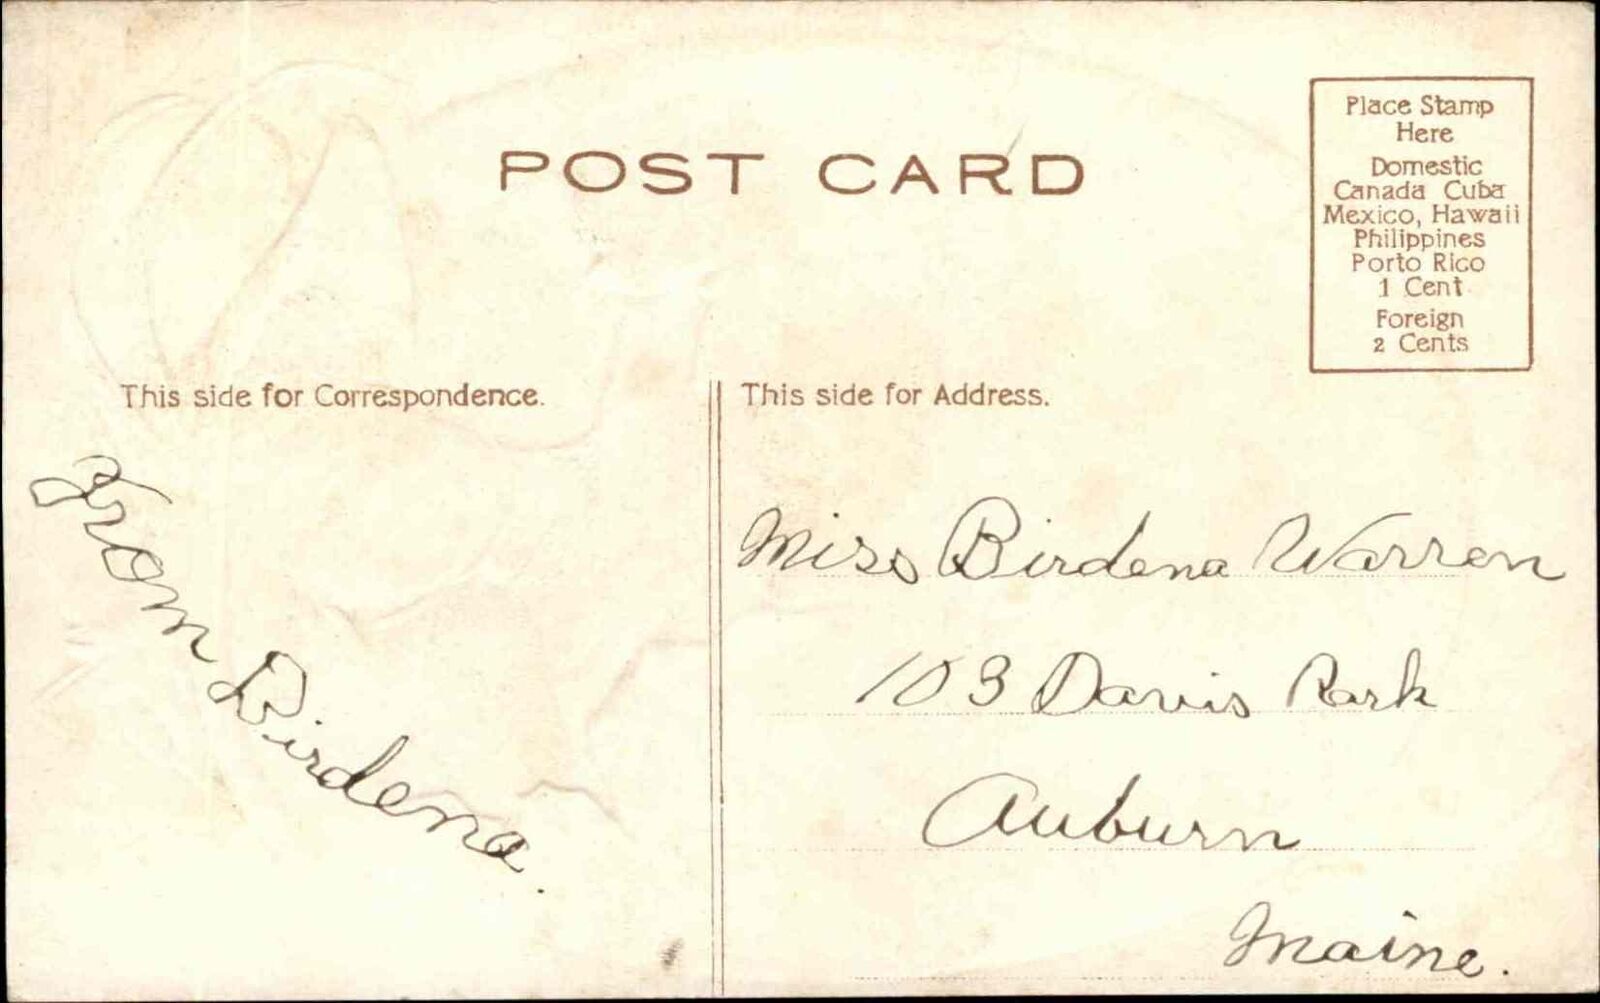 POST CARD
Place Stamp
Here
Domestic
Canada Cuba
Mexico, Hawaii
Philippines
Porto Rico
1 Cent
Foreign
2 Cents
This side for Correspondence.
From Birdena.
This side for Address.
Miss Birdena Warren
103 Davis Park
Auburn
Maine.